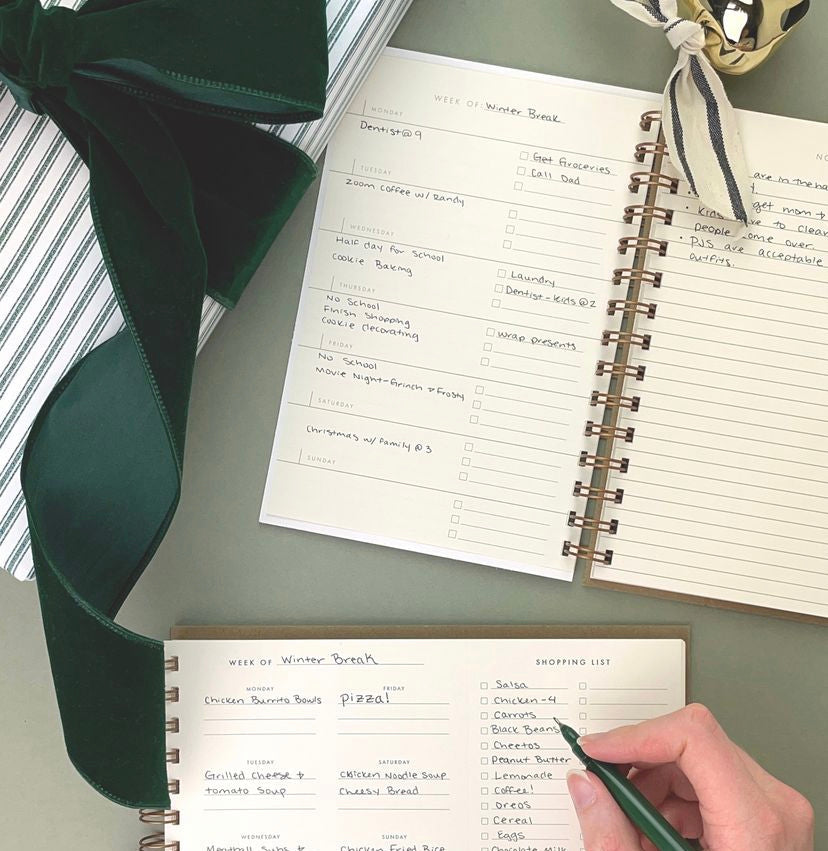 WEEK OF: Winter Break
MONDAY
Dentist @ 9
Get Groceries
Call Dad
TUESDAY
Zoom coffee w/ Randy
WEDNESDAY
Half day for school
Cookie Baking
Laundry
Dentist - kids @ 2
THURSDAY
No School
Finish Shopping
Cookie decorating
wrap presents
FRIDAY
No School
Movie Night - Grinch & Frosty
SATURDAY
Christmas w/ family @ 3
SUNDAY
are in the
get mom
Kids to clean
people come over.
PJS are acceptable
outfits.
WEEK OF Winter Break
MONDAY
Chicken Burrito Bowls
FRIDAY
pizza!
TUESDAY
Grilled Cheese &
tomato Soup
SATURDAY
Chicken Noodle Soup
Cheesy Bread
WEDNESDAY
Meatball Subs &
SUNDAY
Chicken Fried Rice
SHOPPING LIST
Salsa
Chicken - 4
Carrots
Black Beans
Cheetos
Peanut Butter
Lemonade
Coffee!
Oreos
Cereal
Eggs
Chocolate Milk